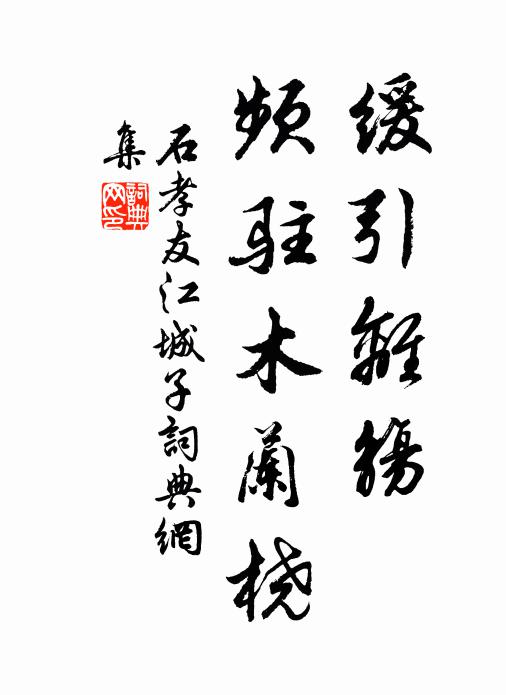 緩引離觴
頻駐木蘭橈
石孝友江城子詞典網
集
詞典網印